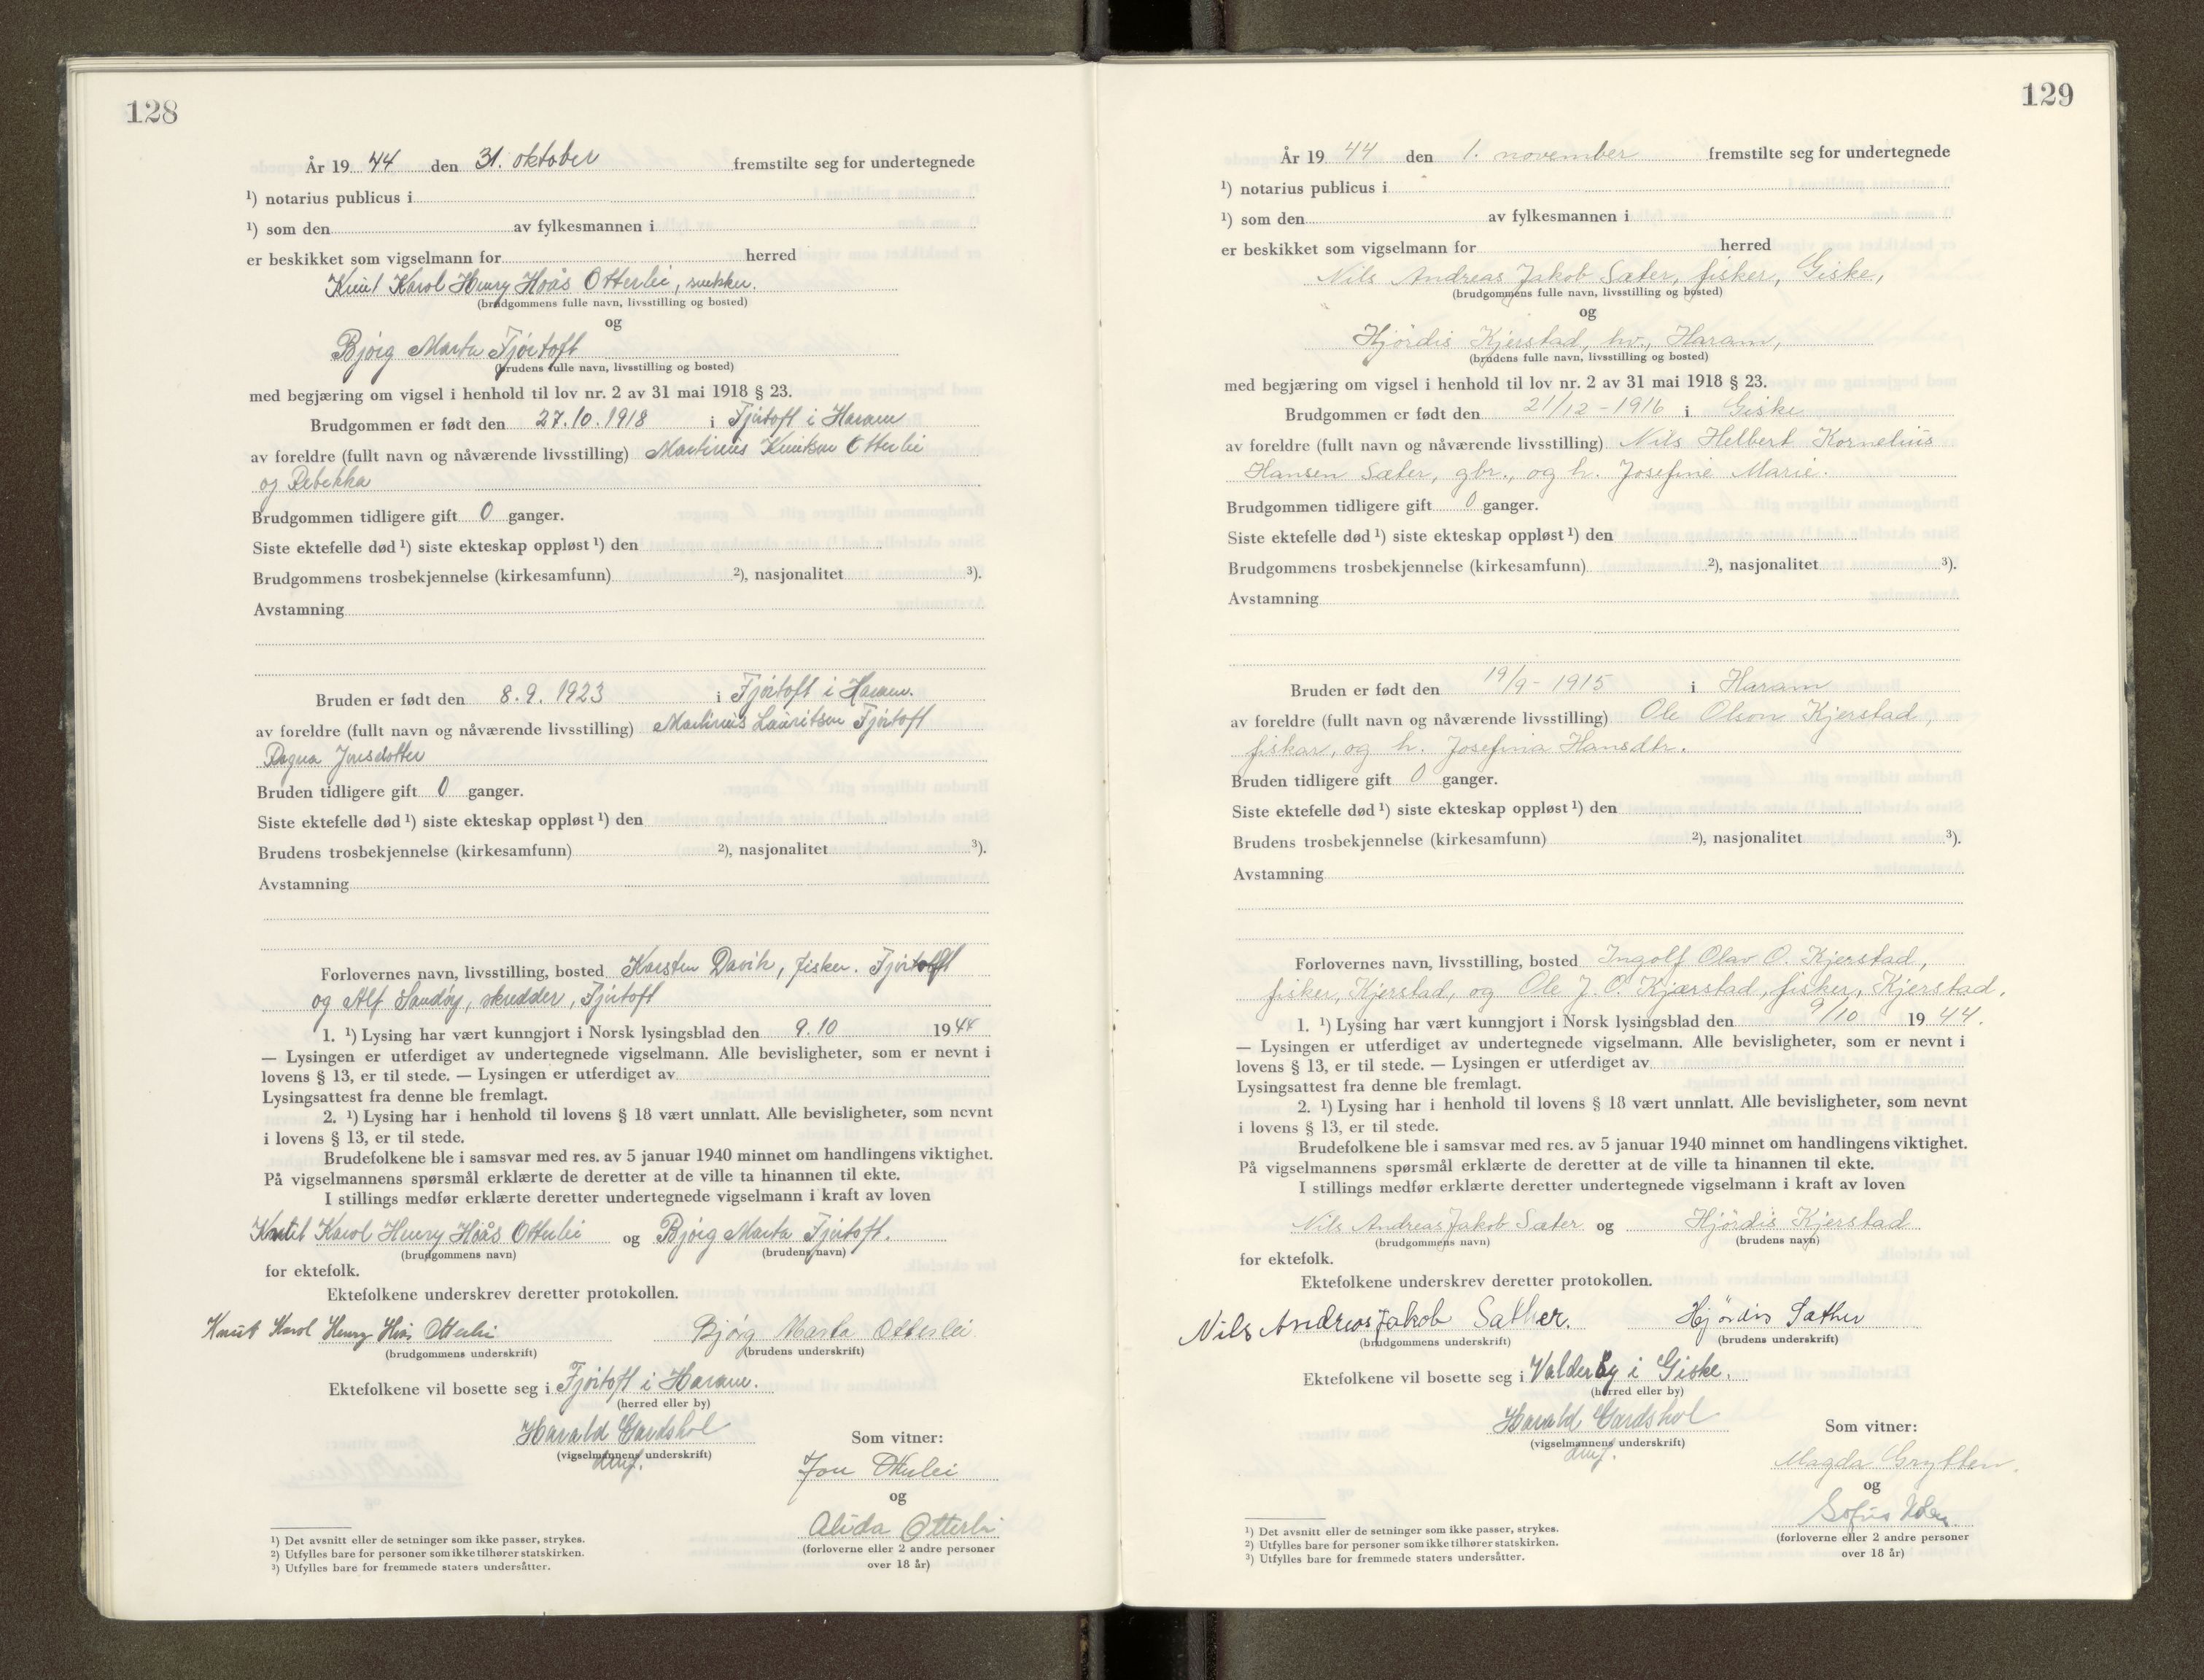 128
År 19 44 den 31. oktober fremstilte seg for undertegnede
¹) notarius publicus i
¹) som den av fylkesmannen i
er beskikket som vigselmann for herred
Knut Karol Henry Hoås Otterlei, snekker.
(brudgommens fulle navn, livsstilling og bosted)
og
Bjørg Marta Fjørtoft
(brudens fulle navn, livsstilling og bosted)
med begjæring om vigsel i henhold til lov nr. 2 av 31 mai 1918 § 23.
Brudgommen er født den 27.10.1918 i Fjørtoft i Haram
av foreldre (fullt navn og nåværende livsstilling) Martinus Knutsen Otterlei
og Rebekka
Brudgommen tidligere gift 0 ganger.
Siste ektefelle død ¹) siste ekteskap oppløst ¹) den
Brudgommens trosbekjennelse (kirkesamfunn) ²), nasjonalitet ³).
Avstamning
Bruden er født den 8.9.1923 i Fjørtoft i Haram.
av foreldre (fullt navn og nåværende livsstilling) Martinus Lauritsen Fjørtoft
Ragna Jonsdotter
Bruden tidligere gift 0 ganger.
Siste ektefelle død ¹) siste ekteskap oppløst ¹) den
Brudens trosbekjennelse (kirkesamfunn) ²), nasjonalitet ³).
Avstamning
Forlovernes navn, livsstilling, bosted Karsten Davik, fisker. Fjørtoft
og Alf Sandøy, skredder, Fjørtoft
1. ¹) Lysing har vært kunngjort i Norsk lysingsblad den 9.10 1944
— Lysingen er utferdiget av undertegnede vigselmann. Alle bevisligheter, som er nevnt i
lovens § 13, er til stede. — Lysingen er utferdiget av
Lysingsattest fra denne ble fremlagt.
2. ¹) Lysing har i henhold til lovens § 18 vært unnlatt. Alle bevisligheter, som nevnt
i lovens § 13, er til stede.
Brudefolkene ble i samsvar med res. av 5 januar 1940 minnet om handlingens viktighet.
På vigselmannens spørsmål erklærte de deretter at de ville ta hinannen til ekte.
I stillings medfør erklærte deretter undertegnede vigselmann i kraft av loven
Knut Karol Henry Hoås Otterlei og Bjørg Marta Fjørtoft.
(brudgommens navn) (brudens navn)
for ektefolk.
Ektefolkene underskrev deretter protokollen.
Knut Karol Henry Hoås Otterlei Bjørg Marta Otterlei
(brudgommens underskrift) (brudens underskrift)
Ektefolkene vil bosette seg i Fjørtoft i Haram.
(herred eller by)
Harald Gardshol
(vigselmannens underskrift)
Som vitner:
Jon Otterlei
og
Alida Otterlei
(forloverne eller 2 andre personer
over 18 år)
¹) Det avsnitt eller de setninger som ikke passer, strykes.
²) Utfylles bare for personer som ikke tilhører statskirken.
³) Utfylles bare for fremmede staters undersåtter.
129
År 19 44 den 1. november fremstilte seg for undertegnede
¹) notarius publicus i
¹) som den av fylkesmannen i
er beskikket som vigselmann for herred
Nils Andreas Jakob Sæter, fisker, Giske,
(brudgommens fulle navn, livsstilling og bosted)
og
Hjördis Kjerstad, hv., Haram,
(brudens fulle navn, livsstilling og bosted)
med begjæring om vigsel i henhold til lov nr. 2 av 31 mai 1918 § 23.
Brudgommen er født den 21/12 - 1916 i Giske
av foreldre (fullt navn og nåværende livsstilling) Nils Helbert Kornelius
Hansen Sæter, gbr., og h. Josefine Marie.
Brudgommen tidligere gift 0 ganger.
Siste ektefelle død ¹) siste ekteskap oppløst ¹) den
Brudgommens trosbekjennelse (kirkesamfunn) ²), nasjonalitet ³).
Avstamning
Bruden er født den 19/9 - 1915 i Haram
av foreldre (fullt navn og nåværende livsstilling) Ole Olson Kjerstad,
fiskar, og h. Josefina Hansdtr.
Bruden tidligere gift 0 ganger.
Siste ektefelle død ¹) siste ekteskap oppløst ¹) den
Brudens trosbekjennelse (kirkesamfunn) ²), nasjonalitet ³).
Avstamning
Forlovernes navn, livsstilling, bosted Ingolf Olav O. Kjerstad,
fisker, Kjerstad, og Ole J. O. Kjærstad, fisker, Kjerstad.
1. ¹) Lysing har vært kunngjort i Norsk lysingsblad den 9/10 19 44.
— Lysingen er utferdiget av undertegnede vigselmann. Alle bevisligheter, som er nevnt i
lovens § 13, er til stede. — Lysingen er utferdiget av
Lysingsattest fra denne ble fremlagt.
2. ¹) Lysing har i henhold til lovens § 18 vært unnlatt. Alle bevisligheter, som nevnt
i lovens § 13, er til stede.
Brudefolkene ble i samsvar med res. av 5 januar 1940 minnet om handlingens viktighet.
På vigselmannens spørsmål erklærte de deretter at de ville ta hinannen til ekte.
I stillings medfør erklærte deretter undertegnede vigselmann i kraft av loven
Nils Andreas Jakob Sæter og Hjördis Kjerstad
(brudgommens navn) (brudens navn)
for ektefolk.
Ektefolkene underskrev deretter protokollen.
Nils Andreas Jakob Sæther. Hjördis Sæther
(brudgommens underskrift) (brudens underskrift)
Ektefolkene vil bosette seg i Valderøy i Giske.
(herred eller by)
Harald Gardshol
(vigselmannens underskrift)
Som vitner:
Magda Grytten.
og
Sofus
(forloverne eller 2 andre personer
over 18 år)
¹) Det avsnitt eller de setninger som ikke passer, strykes.
²) Utfylles bare for personer som ikke tilhører statskirken.
³) Utfylles bare for fremmede staters undersåtter.